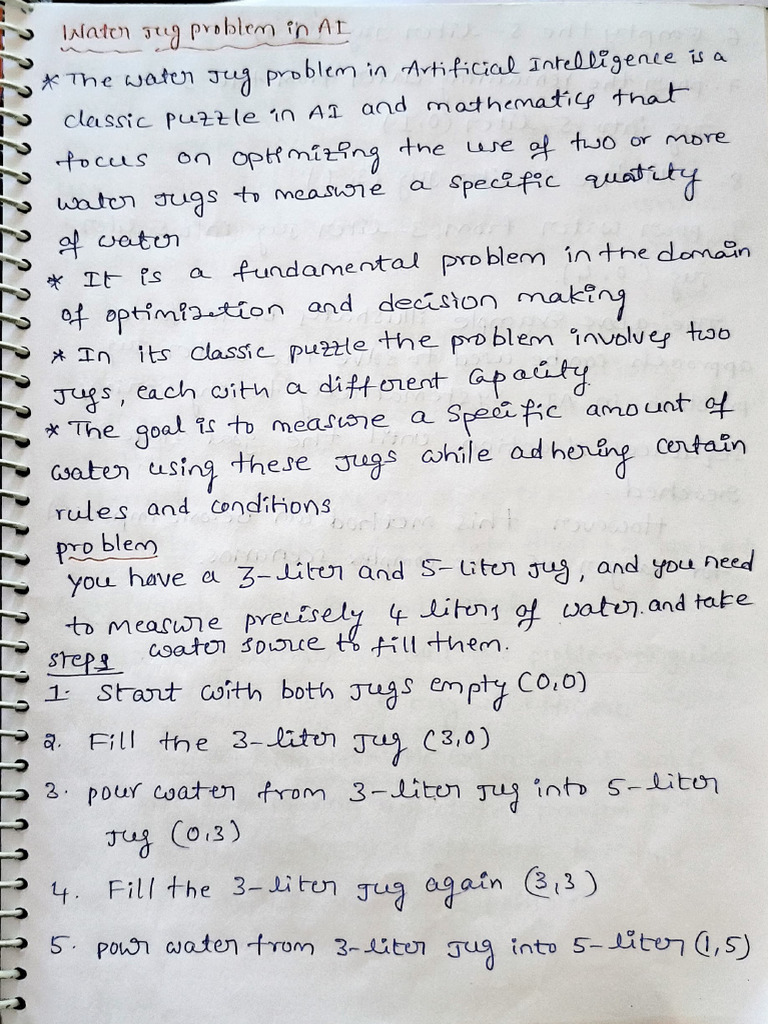 Water Jug problem in AI
* The water Jug problem in Artificial Intelligence is a
classic puzzle in AI and mathematics that
focus on optimizing the use of two or more
water Jugs to measure a specific quatity
of water
* It is a fundamental problem in the domain
of optimization and decision making
* In its classic puzzle the problem involves two
Jugs, each with a different capacity
* The goal is to measure a specific amount of
water using these Jugs while adhering certain
rules and conditions
problem
you have a 3-liter and 5-liter Jug, and you need
to measure precisely 4 liters of water. and take
water source to fill them.
steps
1. Start with both Jugs empty (0,0)
2. Fill the 3-liter Jug (3,0)
3. pour water from 3-liter Jug into 5-liter
Jug (0,3)
4. Fill the 3-liter Jug again (3,3)
5. pour water from 3-liter Jug into 5-liter (1,5)